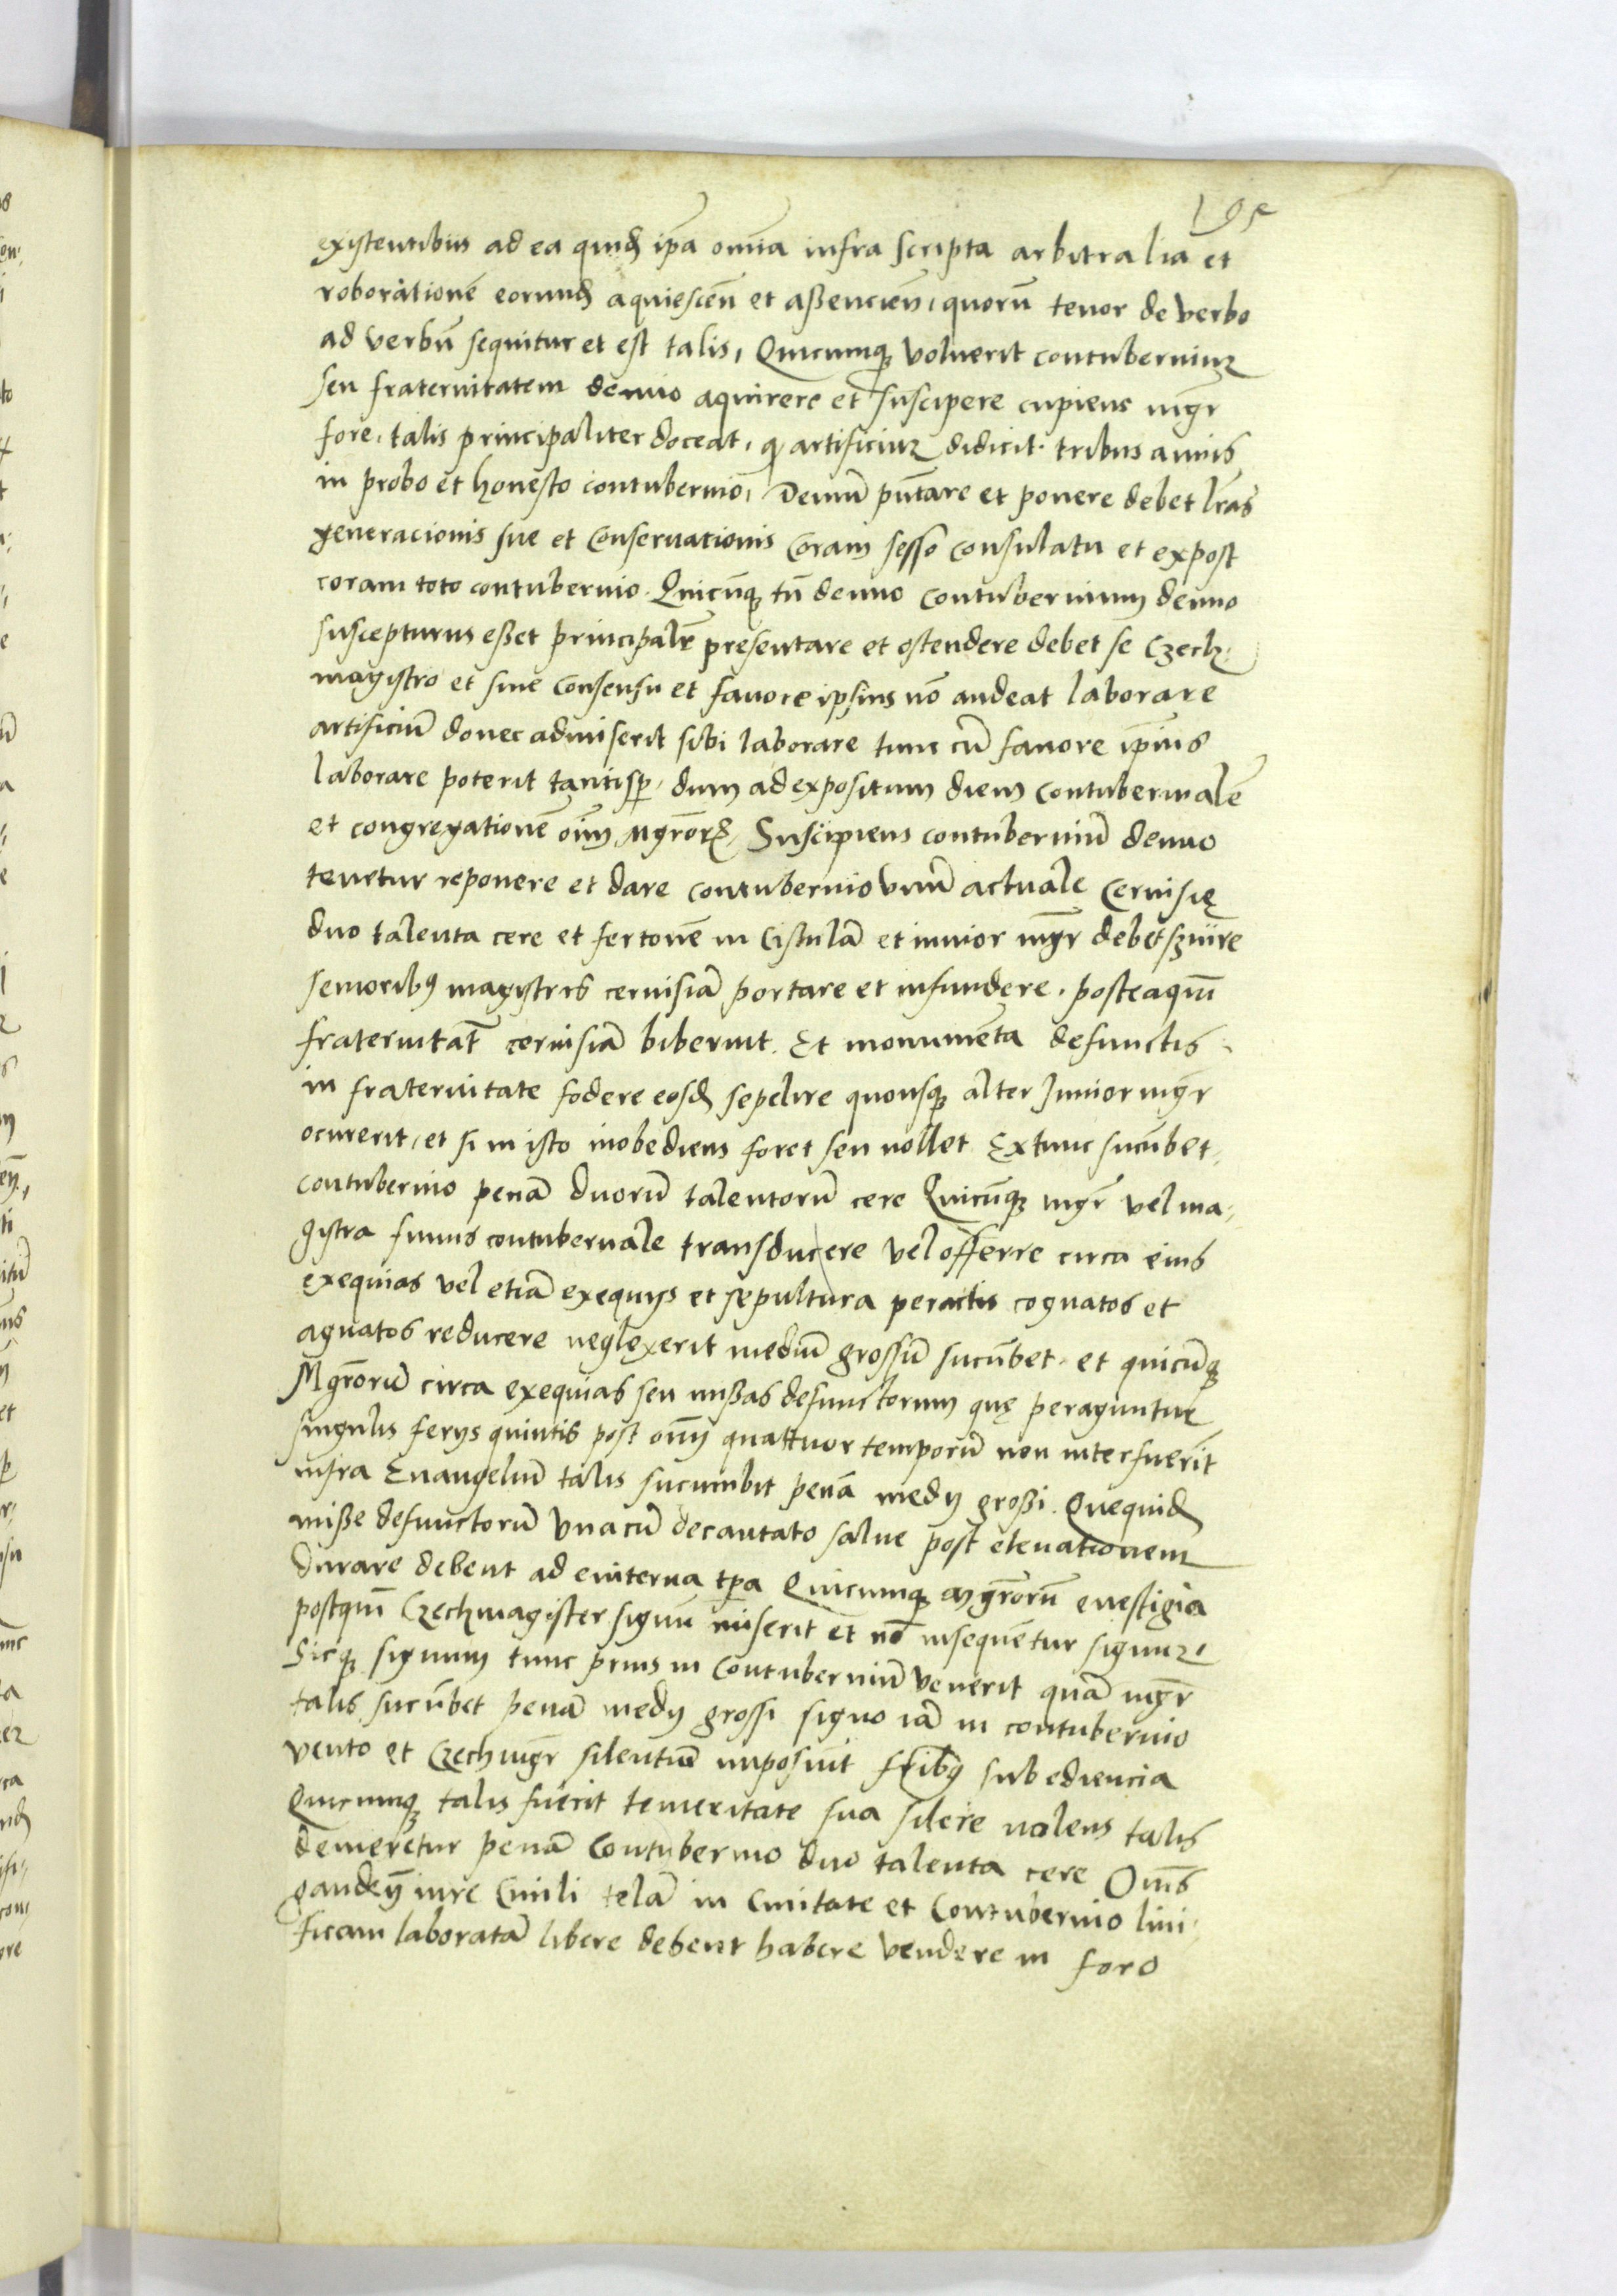 195
existentibus ad ea quid ip̃a om̃ia infra scripta arbitralia et
roborationẽ eorund aquiescẽn et assencieñ, quorũ tenor de verbo
ad verbũ sequitur et est talis, Quicumq voluerit contuberniuz
seu fraternitatem denuo aquirere et suscipere cupiens mgr̃
fore, talis principaliter doceat, q artificiuz didicit tribus annis
in probo et honesto contubernio, Demũ pñtare et ponere debet l̃ras
generacionis sue et Conseruationis Coram sesso consulatu et expost
coram toto contubernio. Quicũq tñ denuo contubernium denuo
suscepturus esset principalr̃ presentare et ostendere debet se Czech,
magistro et sine consensu et fauore ipsius nõ audeat laborare
artificiũ donec admiserit sibi laborare tunc cũ fauore ip̃ius
laborare poterit tantisp, dum ad expositum diem contubernalẽ
et congregationẽ oĩm Mgr̃or, Suscipiens contuberniũ denuo
tenetur reponere et dare contubernio vnũ actuale Ceruisię
duo talenta cere et fertonẽ in Cistulã et iunior mgr̃ debet szuire
seniorib9 magistris ceruisiã portare et infundere, posteaq̃m
fraternitat̃ ceruisiã biberint. Et monumẽta defunctis
in fraternitate fodere eosd sepelire quousq alter Junior mgr̃
ocurerit, et si in isto inobediens foret seu nollet Extunc sucũbet,
contubernio penã duorũ talentorũ cere Quicũq mgr̃ vel ma,
gistra funus contubernale transducere vel offerre circa eius
exequias vel etiã exequijs et sepultura peractis cognatos et
agnatos reducere neglexerit mediũ grossũ sucũbet, et quicũq
Mgr̃orũ circa exequias seu missas defunctorum quę peraguntur
singulis ferijs quintis post om̃ quattuor temporũ non interfuerit
infra Euangeliũ talis sucumbit penã medij grossi. Quequid
misse defunctorũ vna cũ decantato salue post eleuationem
durare debent ad euiterna tp̃a Quicumq mgr̃orũ euestigia
postq̃m Czechmagister signũ miserit et nõ insequẽtur signuz,
Sicq signum tunc prius in Contuberniũ venerit quã mgr̃
talis sucũbet penã medij grossi signo iã in contubernio
vento et Czechmgr̃ silentiũ imposuit fr̃ib9 sub ediencia
Quicumq talis fuerit temeritate sua silere nolens talis
demeretur penã Contubernio duo talenta cere Om̃s
gauden̄ iure Ciuili telã in Ciuitate et Contubernio lini,
ficam laboratã libere debent habere vendere in foro